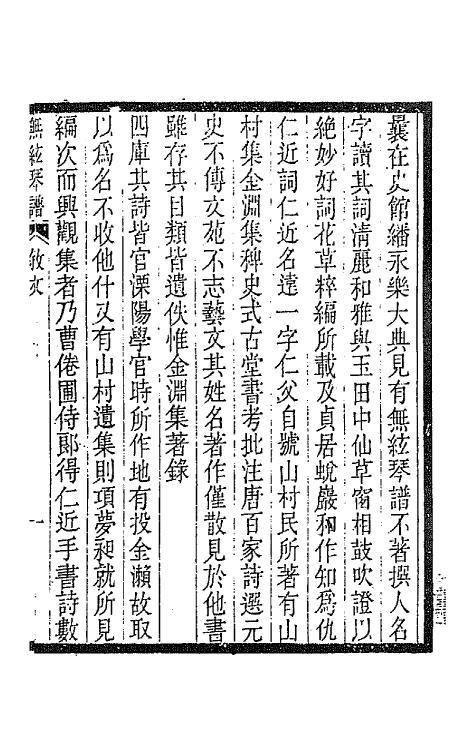 曩在史館繙永樂大典見有無絃琴譜不著撰人名
字讀其詞清麗和雅與玉田中仙草窗相鼓吹證以
絶妙好詞花草粹編所載及貞居蛻巖和作知爲仇
仁近詞仁近名遠一字仁父自號山村民所著有山
村集金淵集稗史式古堂書考批注唐百家詩選元
史不傳文苑不志藝文其姓名著作僅散見於他書
雖存其目類皆遺佚惟金淵集著錄
四庫其詩皆官溧陽學官時所作地有投金瀨故取
以爲名不收他什又有山村遺集則項夢昶就所見
編次而興觀集者乃曹倦圃侍郎得仁近手書詩數
無絃琴譜 敘文 一